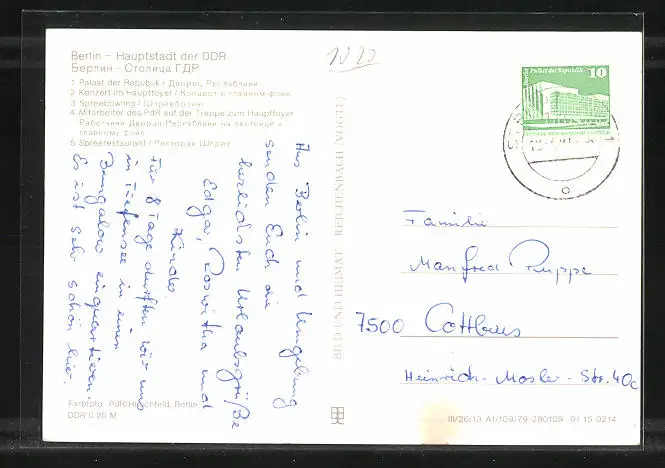 Berlin – Hauptstadt der DDR
Берлин - Столица ГДР
1 Palast der Republik / Дворец Республики
2 Konzert im Hauptfoyer / Концерт в главном фойе
3 Spreebowling / Шпреебоулинг
4 Mitarbeiter des PdR auf der Treppe zum Hauptfoyer
Работники Дворца Республики на лестнице в
главному фойе
5 Spreerestaurant / Ресторан Шпрее
1020
Berlin Palast der Republik 10
Aus Berlin und Umgebung
senden Euch die
herzlichsten Urlaubsgrüße
Edgar, Roswitha und
Kinder.
Für 8 Tage durften wir uns
in Tiefensee in einen
Bungalow einquartieren.
Es ist sehr schön hier.
Familie
Manfred Ruppe
7500 Cottbus
Heinrich-Mosler-Str. 40c
BILD UND HEIMAT REICHENBACH (VOGTL)
Farbfoto: PdR/Hirschfeld, Berlin
DDR 0.20 M
III/26/13 A1/109/79-280109 01 15 0214